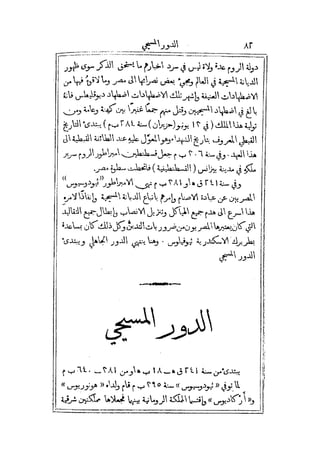 ٨٢ الدور المسيحي
دولة الروم عدة ولاة ليس في سرد اخبارهم ما يستحق الذكر سوى ظهور
الديانة المسيحية في العالم ومجيء بعض نصرائها الى مصر وما لاقوه فيها من
الاضطهادات العنيفة واشهر تلك الاضطهادات اضطهاد ديوقليطس فانه
بالغ في اضطهاد المسيحيين وقتل منهم جمعًا غفيرًا بين كهنة وعامة ومن
تولية هذا الملك (في ١٣ يونيو (حزيران) سنة ٢٨٤ ب م) يبتدئ التاريخ
القبطي المعروف بتاريخ الشهداء وهو المعول عليه عند الطائفة القبطية الى
هذا العهد. وفي سنة ٣٠٦ ب م جعل قسطنطين امبراطور الروم سرير
ملكه في مدينة بيزانس (القسطنطينية) فانحطت سطوة مصر.
وفي سنة ٢٤١ ق ه او ٣٨١ ب م نهى الامبراطور "ثيودوسيوس"
المصريين عن عبادة الاصنام وامرهم باتباع الديانة المسيحية وانفاذًا لامره
هذا اسرع الى هدم جميع الهياكل وتنزيل الانصاب وابطال جميع التقاليد
التي كان يعتبرها المصريون من ضروريات التدين وكل ذلك كان بمساعدة
بطريرك الاسكندرية ثيوفيلوس. وهنا ينتهي الدور الجاهلي ويبتدئ
الدور المسيحي
الدور المسيحي
يبتدئ من سنة ٢٤١ ق ه – ١٨ ب ه او من ٣٨١ – ٦٤٠ ب م
لما توفي "ثيودوسيوس" سنة ٣٩٥ ب م قام ولداه "هونوريوس"
و"اركاديوس" واقتسما المملكة الرومانية بينهما فجعلاها مملكتين شرقية